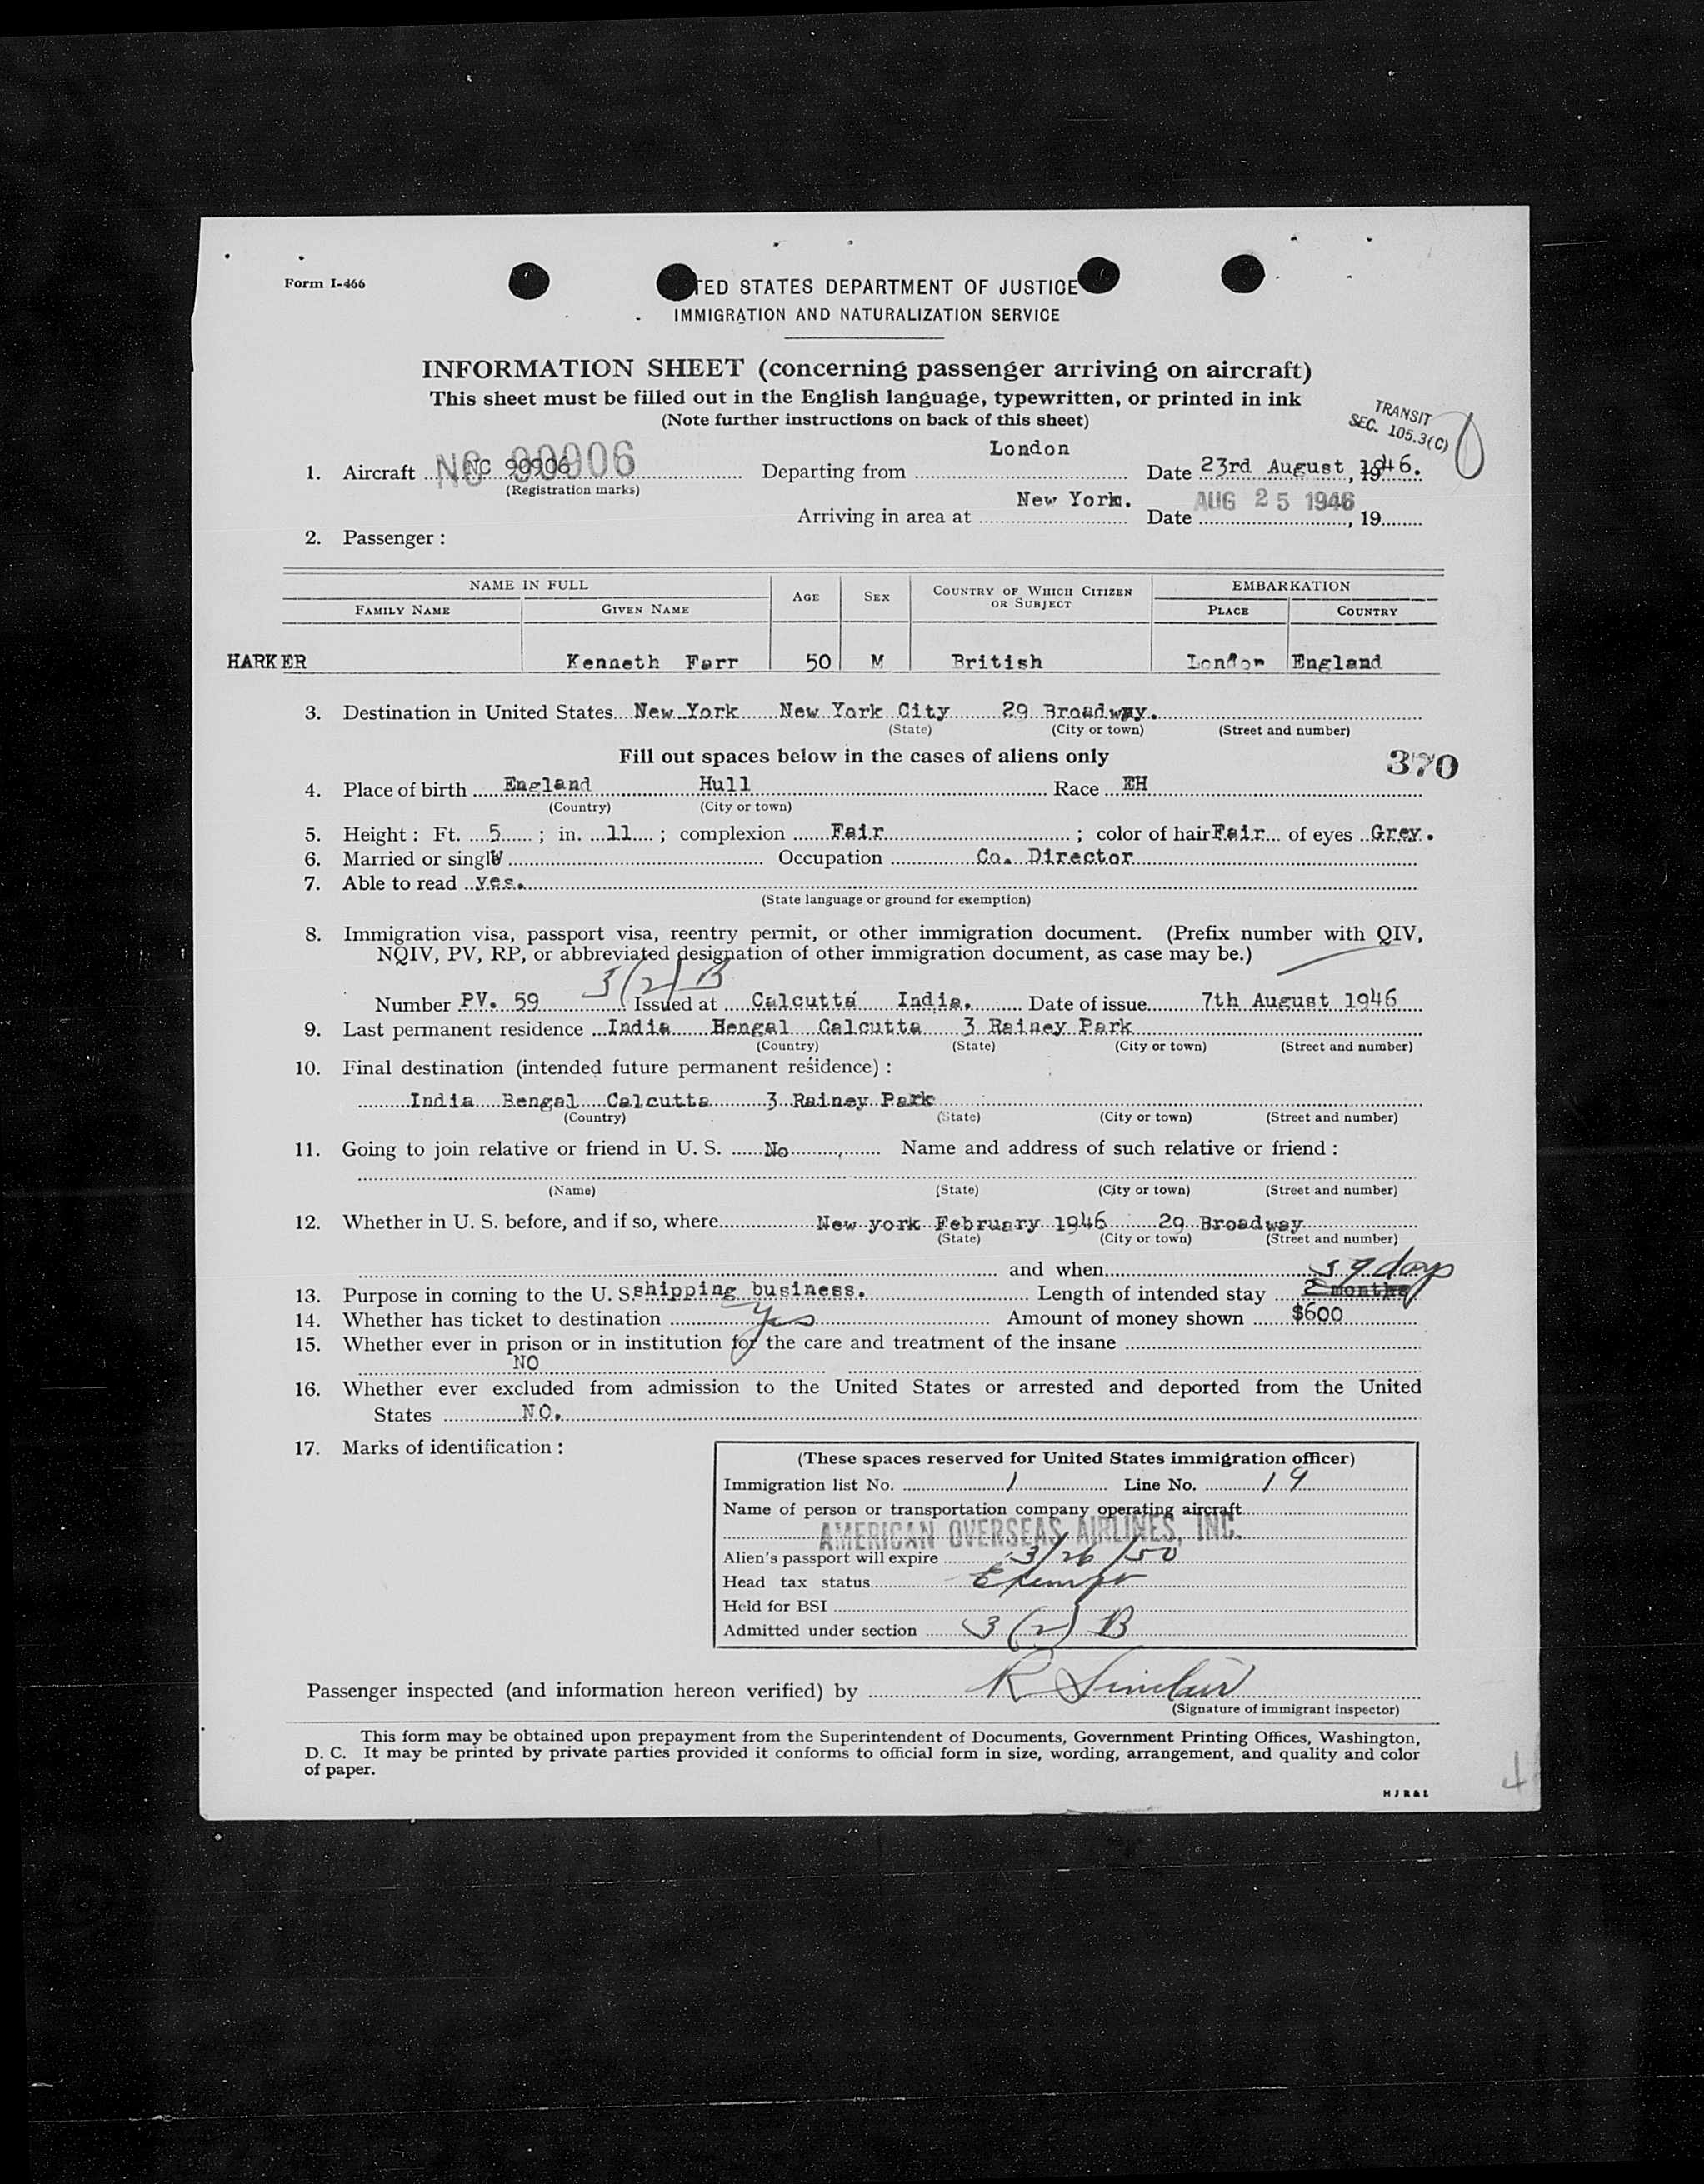 Form I-466
TED STATES DEPARTMENT OF JUSTICE
IMMIGRATION AND NATURALIZATION SERVICE
INFORMATION SHEET (concerning passenger arriving on aircraft)
This sheet must be filled out in the English language, typewritten, or printed in ink
(Note further instructions on back of this sheet)
TRANSIT
SEC. 105.3(C)
London
1. Aircraft NC 90906 NC 90906 Departing from Date 23rd August, 1946.
(Registration marks)
New York. AUG 25 1946
Arriving in area at Date , 19
2. Passenger :
NAME IN FULL AGE SEX COUNTRY OF WHICH CITIZEN OR SUBJECT EMBARKATION
FAMILY NAME GIVEN NAME PLACE COUNTRY
HARKER Kenneth Farr 50 M British London England
3. Destination in United States New York New York City 29 Broadway.
(State) (City or town) (Street and number)
Fill out spaces below in the cases of aliens only
370
4. Place of birth England Hull Race EH
(Country) (City or town)
5. Height : Ft. 5 ; in. 11 ; complexion Fair ; color of hair Fair of eyes Grey.
6. Married or single W Occupation Co. Director
7. Able to read yes.
(State language or ground for exemption)
8. Immigration visa, passport visa, reentry permit, or other immigration document. (Prefix number with QIV,
NQIV, PV, RP, or abbreviated designation of other immigration document, as case may be.)
3(2) B
Number PV. 59 Issued at Calcutta India. Date of issue 7th August 1946
9. Last permanent residence India Bengal Calcutta 3 Rainey Park
(Country) (State) (City or town) (Street and number)
10. Final destination (intended future permanent residence) :
India Bengal Calcutta 3 Rainey Park
(Country) (State) (City or town) (Street and number)
11. Going to join relative or friend in U. S. No Name and address of such relative or friend :
(Name) (State) (City or town) (Street and number)
12. Whether in U. S. before, and if so, where New york February 1946 29 Broadway
(State) (City or town) (Street and number)
and when
59 days
13. Purpose in coming to the U. S. shipping business. Length of intended stay 2 months
14. Whether has ticket to destination Yes Amount of money shown $600
15. Whether ever in prison or in institution for the care and treatment of the insane
NO
16. Whether ever excluded from admission to the United States or arrested and deported from the United
States NO.
17. Marks of identification :
(These spaces reserved for United States immigration officer)
Immigration list No. 1 Line No. 19
Name of person or transportation company operating aircraft
AMERICAN OVERSEAS AIRLINES, INC.
Alien's passport will expire 3/26/50
Head tax status Exempt
Held for BSI
Admitted under section 3(2) B
Passenger inspected (and information hereon verified) by R Sinclair
(Signature of immigrant inspector)
This form may be obtained upon prepayment from the Superintendent of Documents, Government Printing Offices, Washington,
D. C. It may be printed by private parties provided it conforms to official form in size, wording, arrangement, and quality and color
of paper.
H J R & L